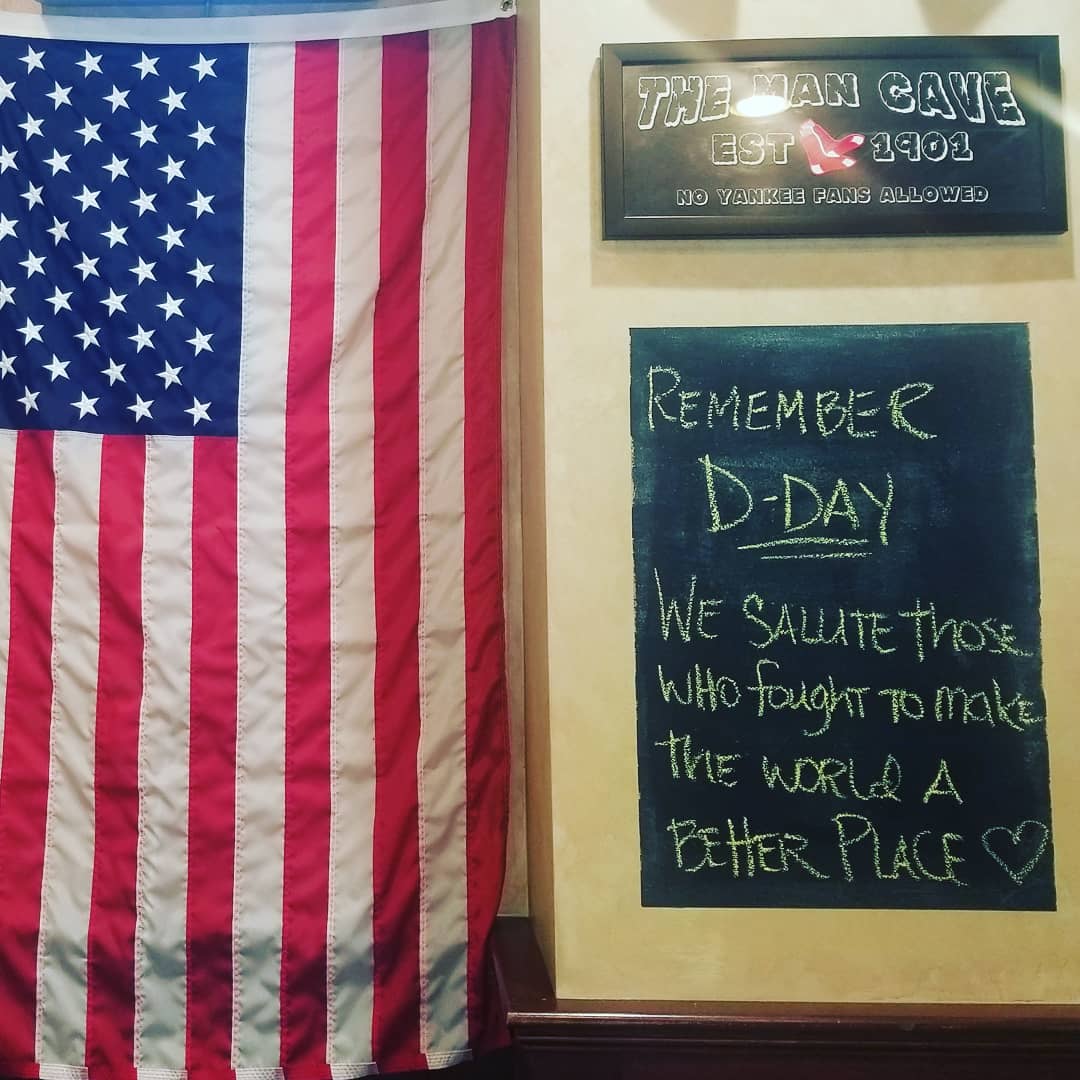 THE MAN CAVE
EST 1901
NO YANKEE FANS ALLOWED
REMEMBER
D-DAY
WE SALUTE THOSE
WHO fought TO make
THE WORLD A
BETTER PLACE